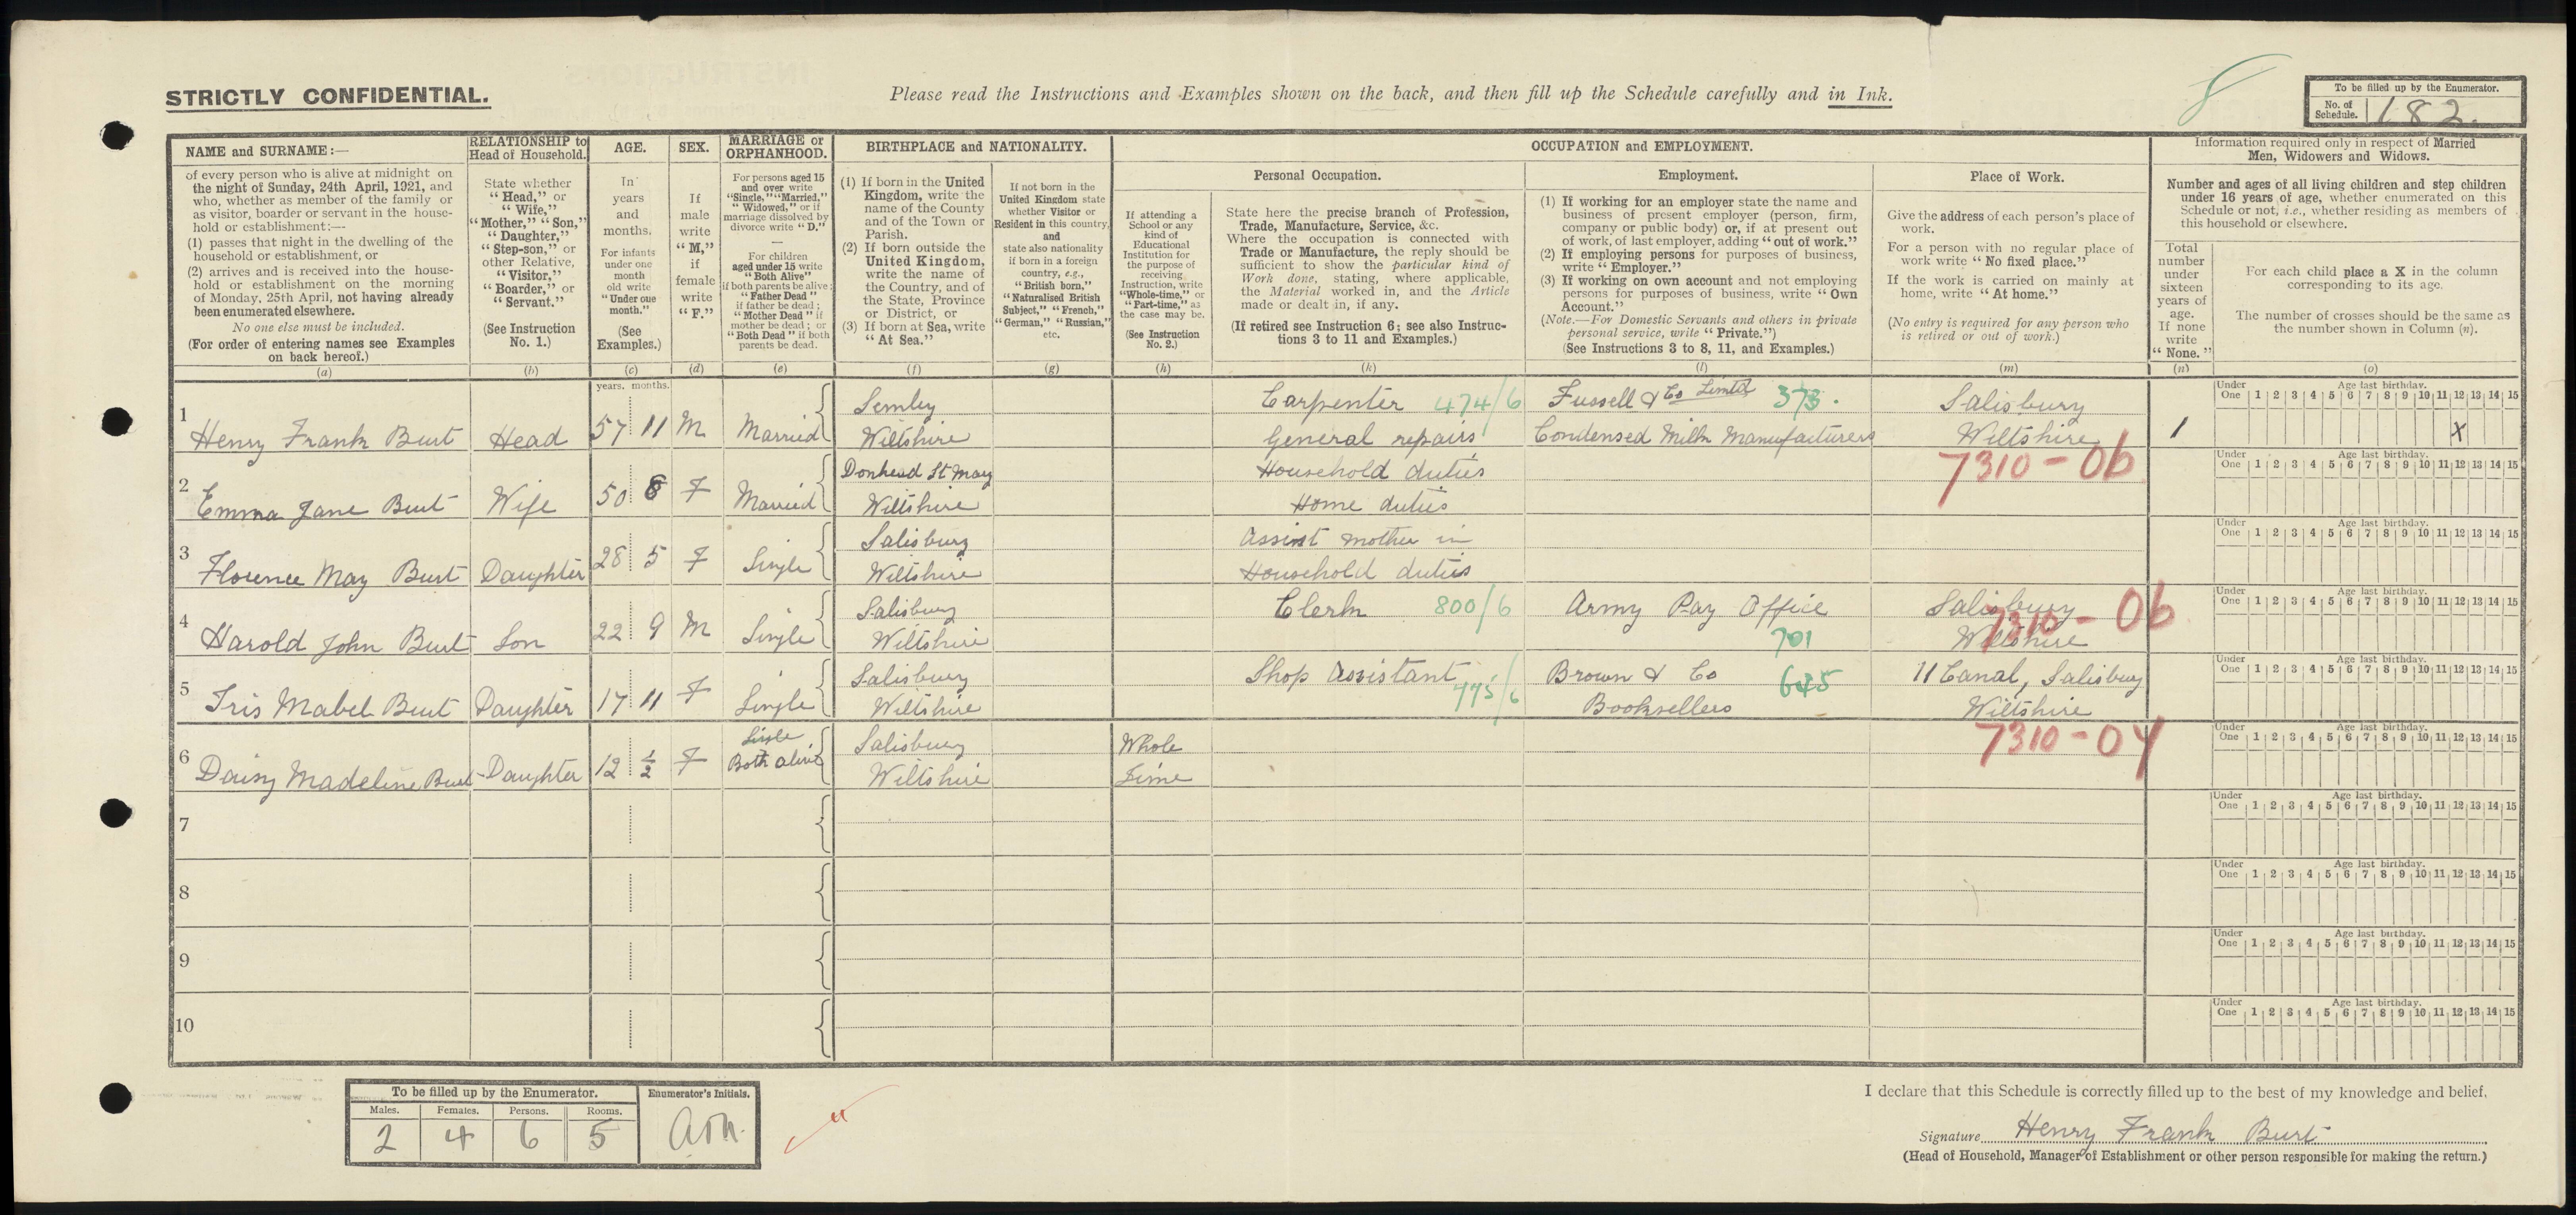 STRICTLY CONFIDENTIAL.
Please read the Instructions and Examples shown on the back, and then fill up the Schedule carefully and in Ink.
8
To be filled up by the Enumerator.
No. of Schedule. 182.
NAME and SURNAME:—
of every person who is alive at midnight on
the night of Sunday, 24th April, 1921, and
who, whether as member of the family or
as visitor, boarder or servant in the house-
hold or establishment:—
(1) passes that night in the dwelling of the
household or establishment, or
(2) arrives and is received into the house-
hold or establishment on the morning
of Monday, 25th April, not having already
been enumerated elsewhere.
No one else must be included.
(For order of entering names see Examples
on back hereof.)
(a)
RELATIONSHIP to
Head of Household.
State whether
"Head," or
"Wife,"
"Mother," "Son,"
"Daughter,"
"Step-son," or
other Relative,
"Visitor,"
"Boarder," or
"Servant."
(See Instruction
No. 1.)
(b)
AGE.
In
years
and
months.
For infants
under one
month
old write
"Under one
month."
(See
Examples.)
(c)
SEX.
If
male
write
"M,"
if
female
write
"F."
(d)
MARRIAGE or
ORPHANHOOD.
For persons aged 15
and over write
"Single," "Married,"
"Widowed," or if
marriage dissolved by
divorce write "D."
—
For children
aged under 15 write
"Both Alive"
if both parents be alive;
"Father Dead"
if father be dead;
"Mother Dead" if
mother be dead; or
"Both Dead" if both
parents be dead.
(e)
BIRTHPLACE and NATIONALITY.
(1) If born in the United
Kingdom, write the
name of the County
and of the Town or
Parish.
(2) If born outside the
United Kingdom,
write the name of
the Country, and of
the State, Province
or District, or
(3) If born at Sea, write
"At Sea."
(f)
If not born in the
United Kingdom state
whether Visitor or
Resident in this country,
and
state also nationality
if born in a foreign
country, e.g.,
"British born,"
"Naturalised British
Subject," "French,"
"German," "Russian,"
etc.
(g)
OCCUPATION and EMPLOYMENT.
If attending a
School or any
kind of
Educational
Institution for
the purpose of
receiving
Instruction, write
"Whole-time," or
"Part-time," as
the case may be.
(See Instruction
No. 2.)
(h)
Personal Occupation.
State here the precise branch of Profession,
Trade, Manufacture, Service, &c.
Where the occupation is connected with
Trade or Manufacture, the reply should be
sufficient to show the particular kind of
Work done, stating, where applicable,
the Material worked in, and the Article
made or dealt in, if any.
(If retired see Instruction 6; see also Instruc-
tions 3 to 11 and Examples.)
(k)
Employment.
(1) If working for an employer state the name and
business of present employer (person, firm,
company or public body) or, if at present out
of work, of last employer, adding "out of work."
(2) If employing persons for purposes of business,
write "Employer."
(3) If working on own account and not employing
persons for purposes of business, write "Own
Account."
(Note.—For Domestic Servants and others in private
personal service, write "Private.")
(See Instructions 3 to 8, 11, and Examples.)
(l)
Place of Work.
Give the address of each person's place of
work.
For a person with no regular place of
work write "No fixed place."
If the work is carried on mainly at
home, write "At home."
(No entry is required for any person who
is retired or out of work.)
(m)
Information required only in respect of Married
Men, Widowers and Widows.
Number and ages of all living children and step children
under 16 years of age, whether enumerated on this
Schedule or not, i.e., whether residing as members of
this household or elsewhere.
Total
number
under
sixteen
years of
age.
If none
write
"None."
(n)
For each child place a X in the column
corresponding to its age.
The number of crosses should be the same as
the number shown in Column (n).
(o)
years. months.
1 Henry Frank Burt Head 57 11 M Married Semley Wiltshire Carpenter General repairs 474/6 Fussell & Co Limtd Condensed Milk Manufacturers 373. Salisbury Wiltshire 1 X
Under One Age last birthday. 1 2 3 4 5 6 7 8 9 10 11 12 13 14 15
7310-06
2 Emma Jane Burt Wife 50 8 F Married Donhead St Mary Wiltshire Household duties Home duties
Under One Age last birthday. 1 2 3 4 5 6 7 8 9 10 11 12 13 14 15
3 Florence May Burt Daughter 28 5 F Single Salisbury Wiltshire Assist mother in Household duties
Under One Age last birthday. 1 2 3 4 5 6 7 8 9 10 11 12 13 14 15
4 Harold John Burt Son 22 9 M Single Salisbury Wiltshire Clerk 800/6 Army Pay Office 701 Salisbury Wiltshire 7310-06
Under One Age last birthday. 1 2 3 4 5 6 7 8 9 10 11 12 13 14 15
5 Iris Mabel Burt Daughter 17 11 F Single Salisbury Wiltshire Shop Assistant 775/6 Brown & Co Booksellers 11 Canal, Salisbury Wiltshire
Under One Age last birthday. 1 2 3 4 5 6 7 8 9 10 11 12 13 14 15
7310-04
6 Daisy Madeline Burt Daughter 12 ½ F Single Both alive Salisbury Wiltshire Whole Time
Under One Age last birthday. 1 2 3 4 5 6 7 8 9 10 11 12 13 14 15
7
Under One Age last birthday. 1 2 3 4 5 6 7 8 9 10 11 12 13 14 15
8
Under One Age last birthday. 1 2 3 4 5 6 7 8 9 10 11 12 13 14 15
9
Under One Age last birthday. 1 2 3 4 5 6 7 8 9 10 11 12 13 14 15
10
Under One Age last birthday. 1 2 3 4 5 6 7 8 9 10 11 12 13 14 15
To be filled up by the Enumerator.
Males. Females. Persons. Rooms.
2 4 6 5
Enumerator's Initials.
I declare that this Schedule is correctly filled up to the best of my knowledge and belief.
Signature Henry Frank Burt
(Head of Household, Manager of Establishment or other person responsible for making the return.)